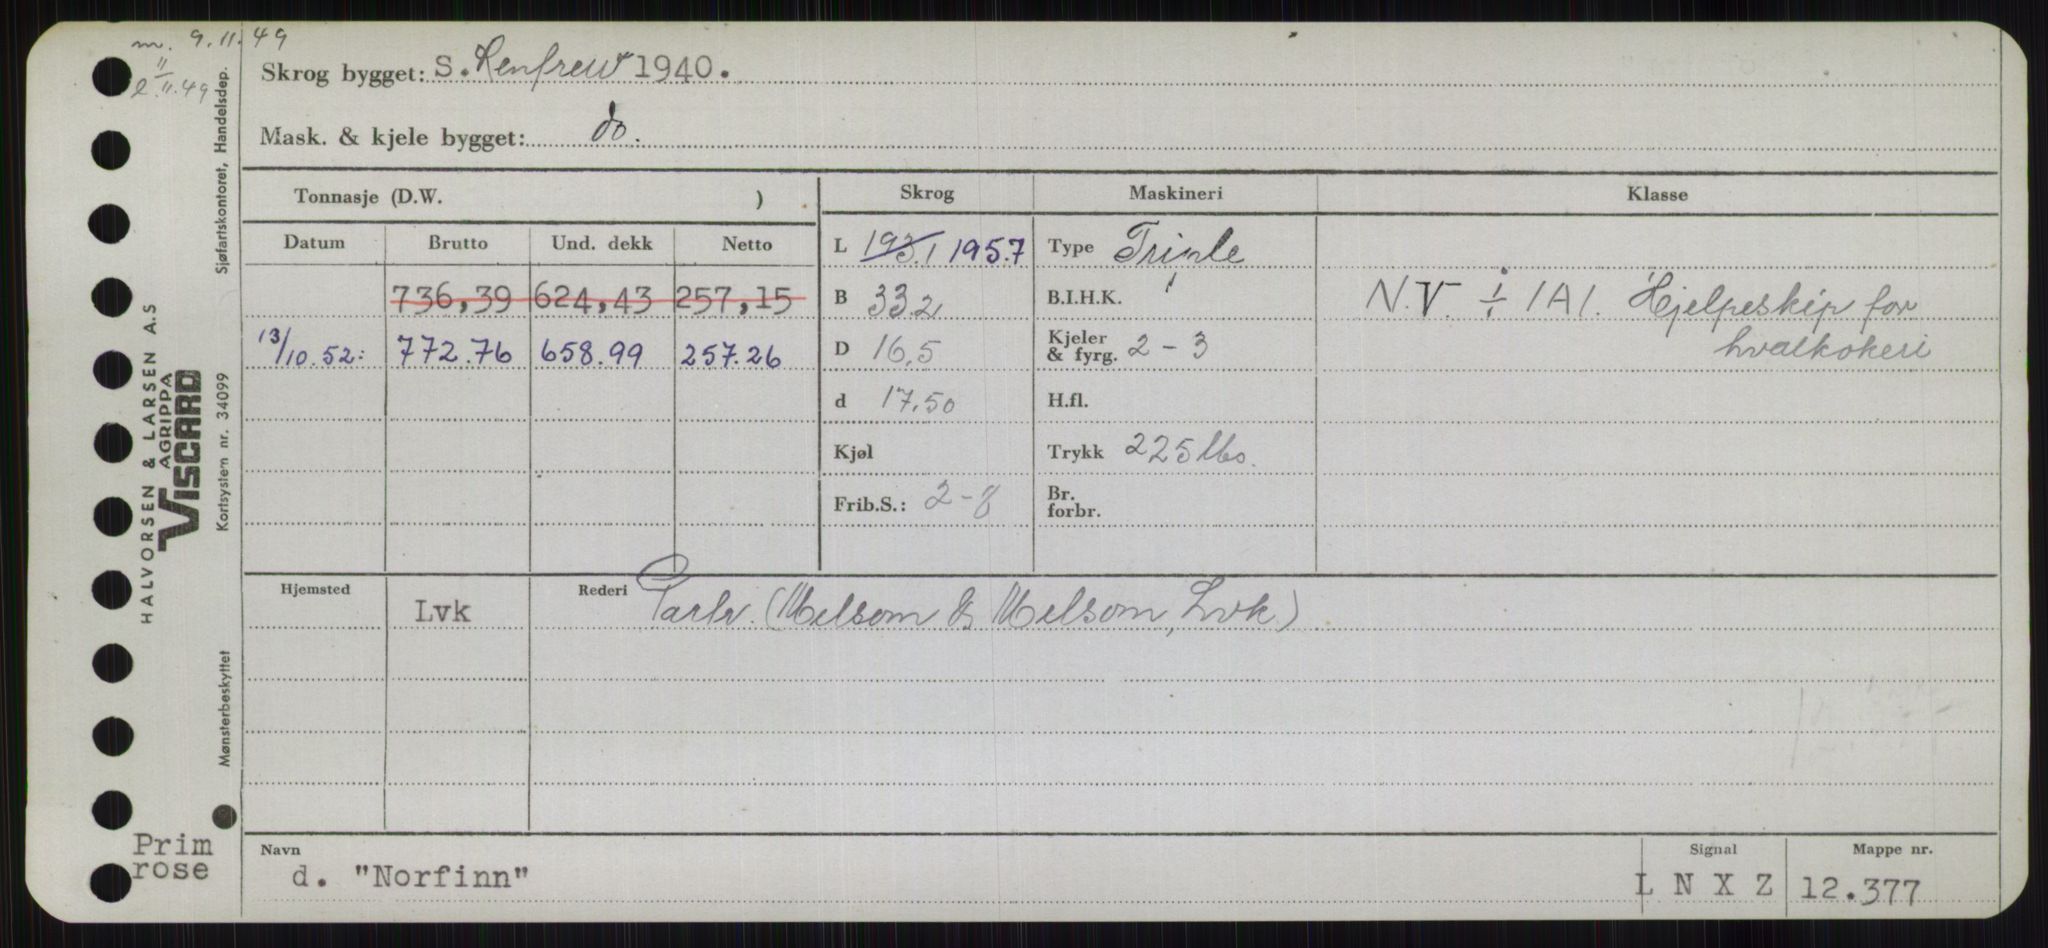 m. 9.11.49
e 11/11.49
Skrog bygget: S. Renfrew 1940.
Mask. & kjele bygget: do.
Tonnasje (D.W. ) Skrog Maskineri Klasse
Datum Brutto Und. dekk Netto
L 193.1 195.7 Type Triple
736,39 624,43 257,15 B 33.2 B.I.H.K. N.V. ÷ 1A1. Hjelpeskip for
hvalkokeri
13/10.52: 772.76 658.99 257.26 D 16.5 Kjeler & fyrg. 2 - 3
d 17.50 H.fl.
Kjøl Trykk 225 lbs.
Frib.S.: 2-8 Br. forbr.
Hjemsted Lvk Rederi Partr. (Melsom & Melsom, Lvk)
Navn Signal Mappe nr.
d. "Norfinn" L N X Z 12.377
Prim
rose
Sjøfartskontoret, Handelsdep.
HALVORSEN & LARSEN A.S
AGRIPPA
VISCARD
Kortsystem nr. 34099
Mønsterbeskyttet